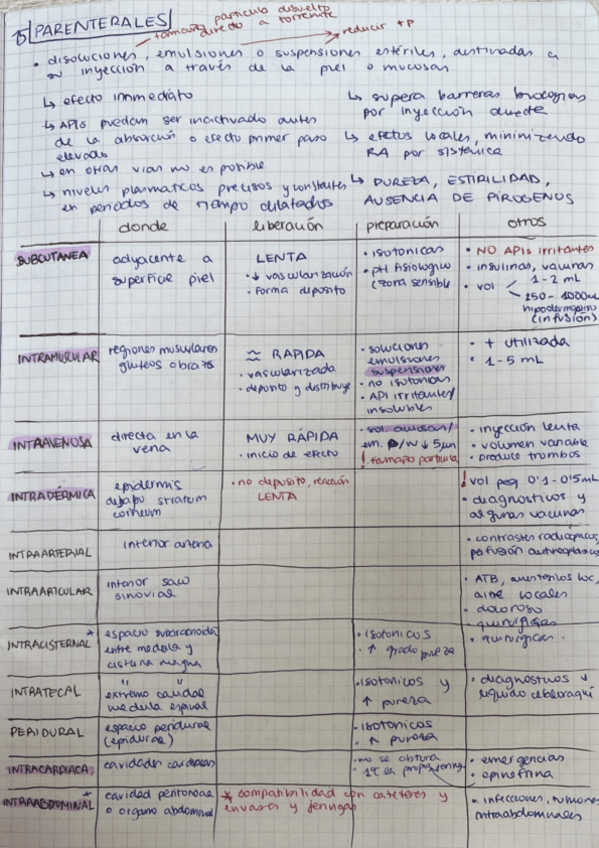 5) PARENTERALES
partícula disuelta
tamaño directo a torrente
reducir tP
• disoluciones, emulsiones o suspensiones estériles, destinadas a
su inyección a través de la piel o mucosas
↳ efecto inmediato
↳ APIs puedan ser inactivado antes
de la absorción o efecto primer paso
elevado
↳ en otras vías no es posible
↳ niveles plasmáticos precisos y constantes
en periodos de tiempo dilatados
↳ supera barreras biológicas
por inyección directa
↳ efectos locales, minimizando
RA por sistémica
↳ PUREZA, ESTIRILIDAD,
AUSENCIA DE PIRÓGENOS
donde liberación preparación otros
SUBCUTANEA
adyacente a
superficie piel
LENTA
• ↓ vascularización
• forma deposito
• isotonicas
• pH fisiologico
(zona sensible
• NO APIs irritantes
• insulinas, vacunas
• vol < 1-2 mL
250-1000mL
hipodermoclisis
(infusión)
INTRAMUSCULAR
regiones musculares
gluteos o brazo
≈ RAPIDA
• vascularizada
• deposito y distribuye
• soluciones
emulsiones
suspensiones
• no isotonicas
• API irritantes/
insolubles
• + utilizada
• 1-5 mL
INTRAVENOSA
directa en la
vena
MUY RÁPIDA
• inicio de efecto
• sol. acuosas/
em. O/W ↓ 5µm
! tamaño particula
• inyección lenta
• volumen variable
• produce trombos
INTRADÉRMICA
epidermis
debajo stratum
corneum
• no deposito, reacción
LENTA
! vol peq 0'1-0'5mL
• diagnosticos y
algunas vacunas
INTRAARTERIAL
interior arteria
• contrastes radiopacos,
perfusión antineoplásicos
INTRAARTICULAR
interior saco
sinovial
• ATB, anestesicos loc,
aine locales
• doloroso
• quirúrgicas
INTRACISTERNAL *
espacio subaracnoidea
entre medula y
cisterna magna
• isotonicos
• ↑ grado pureza
• quirúrgicas
INTRATECAL
" "
extremo caudal
medula espinal
• isotonicos y
↑ pureza
• diagnosticos y
liquido cefaloraqui
PERIDURAL
espacio peridural
(epidural)
• isotonicos
• ↑ pureza
INTRACARDIACA
cavidades cardiacas
• no se obtura
• 1º la prop. jering.
• emergencias
• epinefrina
INTRAABDOMINAL *
cavidad peritoneal
o organo abdominal
* compatibilidad con catéteres y
envases y jeringas
• infecciones, tumores
intraabdominales